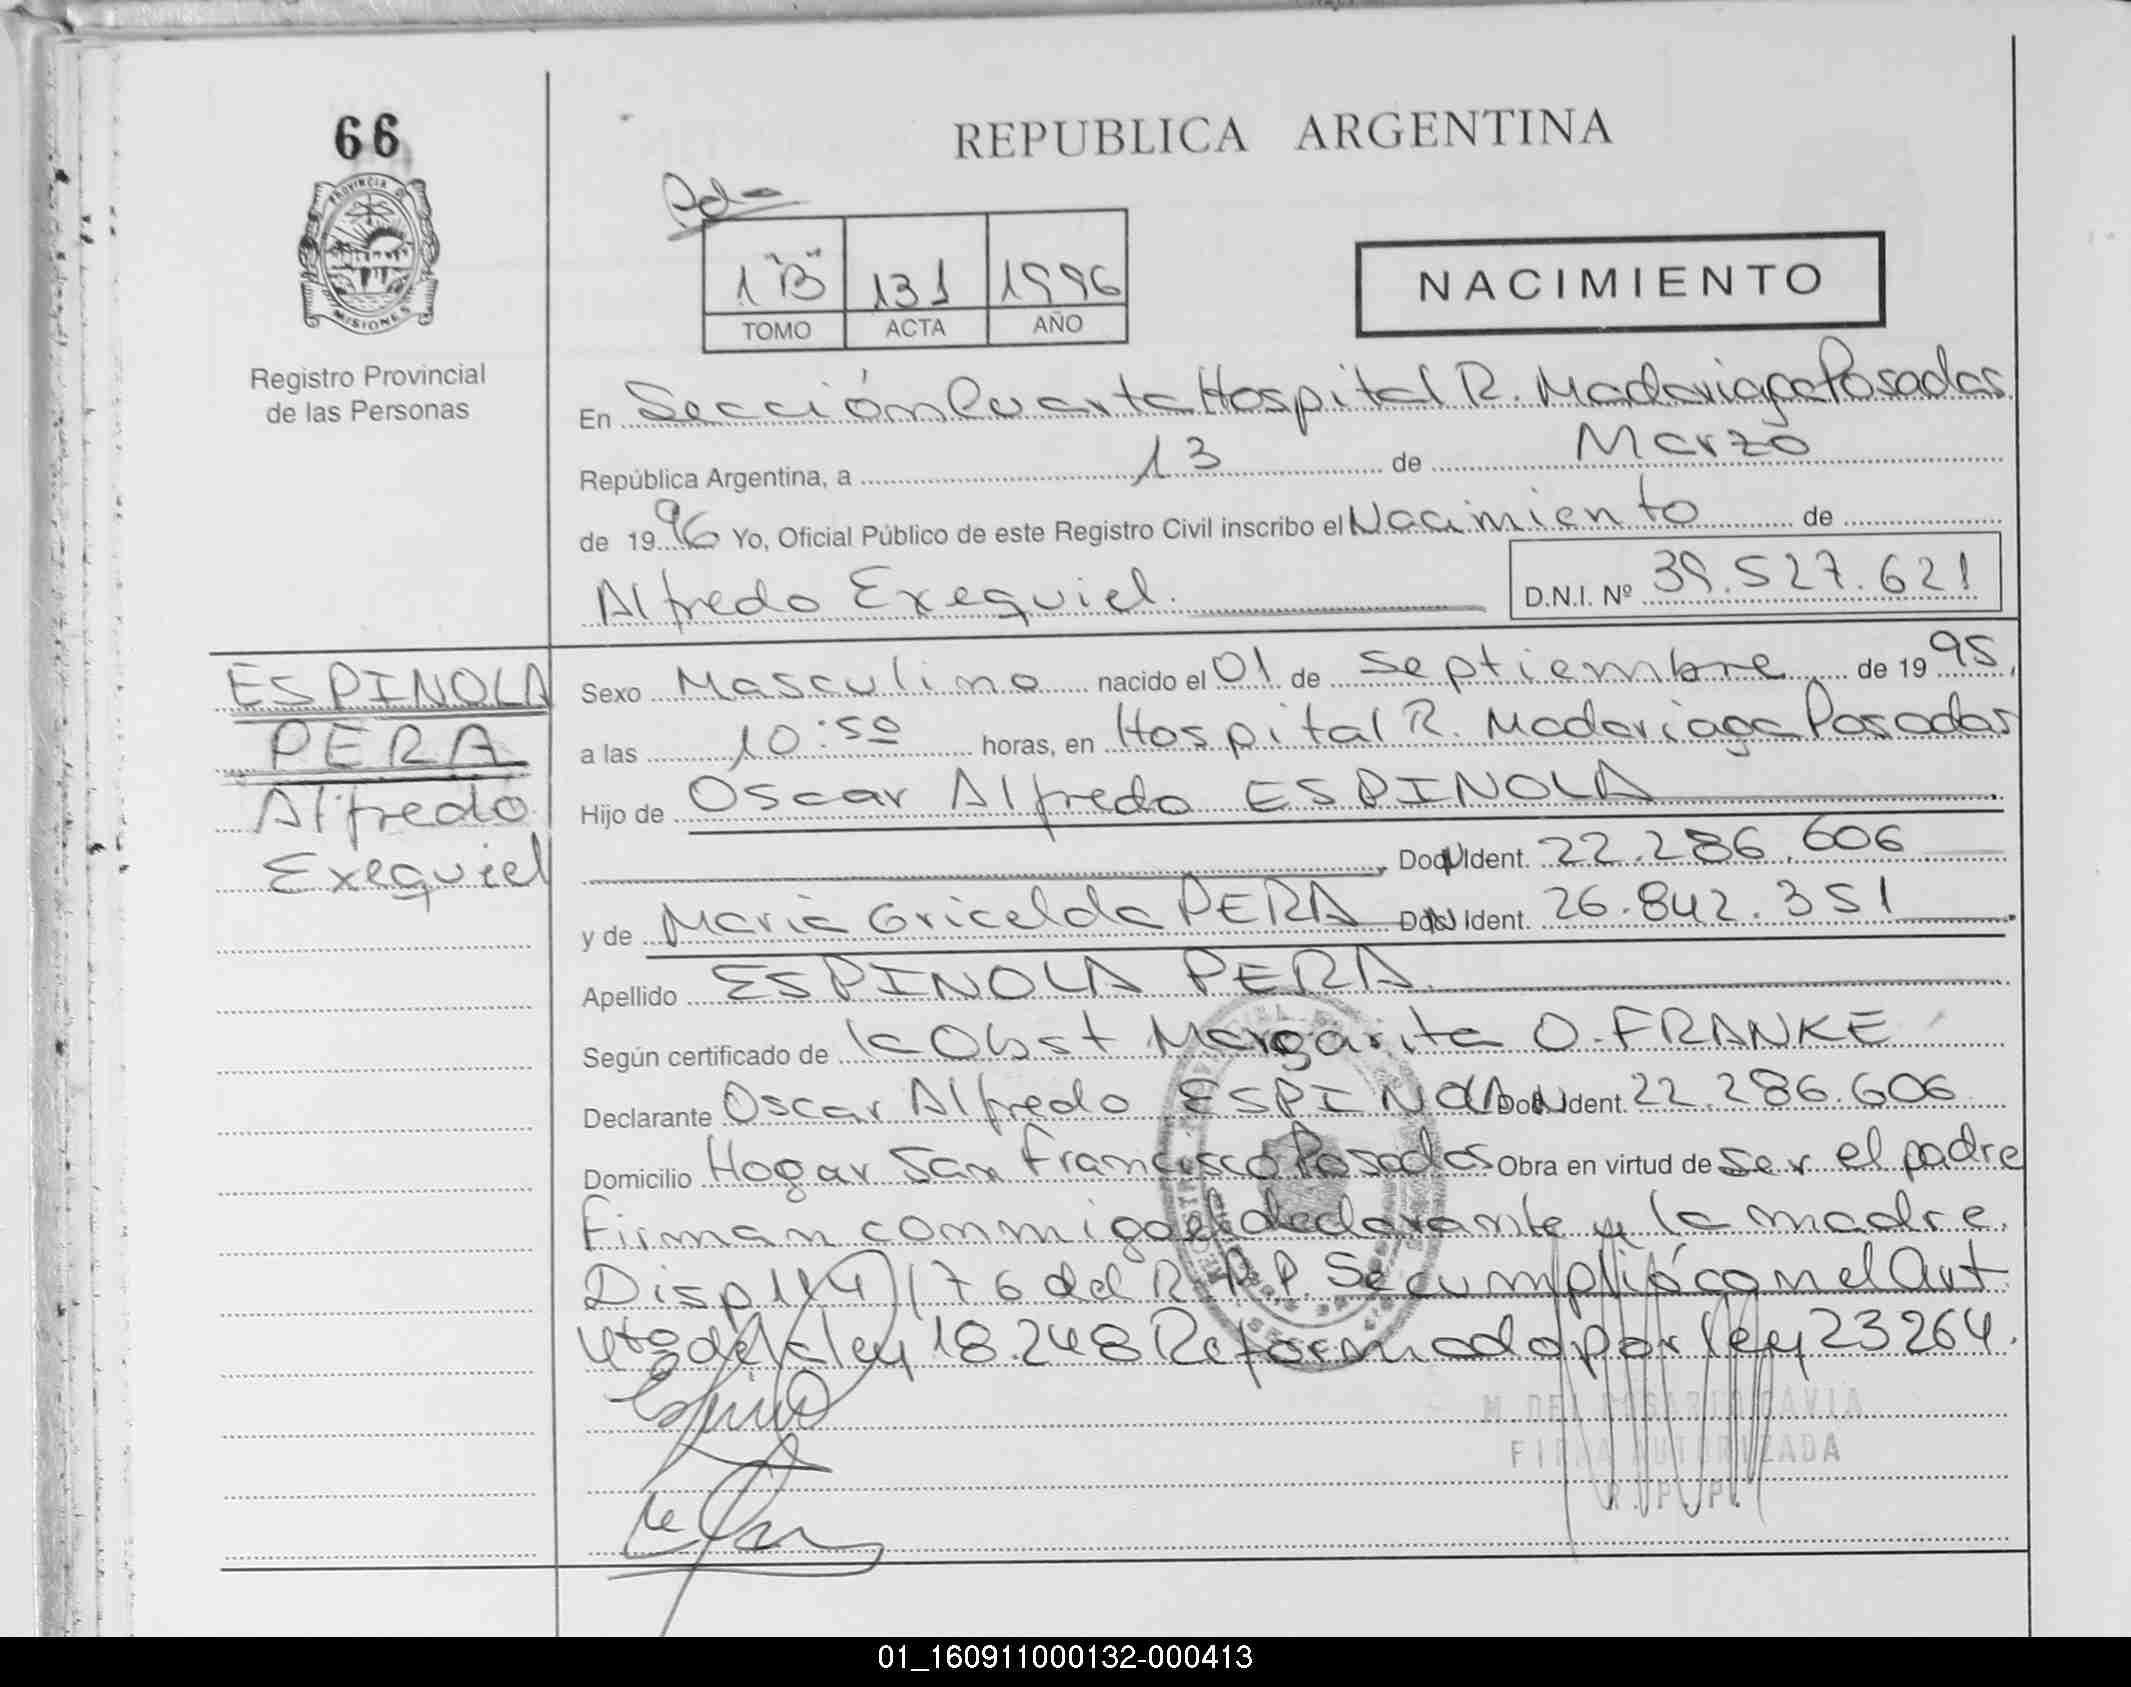 66
REPUBLICA ARGENTINA
PROVINCIA D
MISIONES
Registro Provincial
de las Personas
1 "B" 131 1996
TOMO ACTA AÑO
NACIMIENTO
En Sección Cuarta Hospital R. Madariaga Posadas
República Argentina, a 13 de Marzo
de 1996 Yo, Oficial Público de este Registro Civil inscribo el Nacimiento de
Alfredo Exequiel. D.N.I. Nº 39.527.621
ESPINOLA
PERA
Alfredo
Exequiel
Sexo Masculino nacido el 01 de Septiembre de 1995,
a las 10:50 horas, en Hospital R. Madariaga Posadas
Hijo de Oscar Alfredo ESPINOLA
Doc. Ident. 22.286.606
y de Maria Gricelda PERA Doc. Ident. 26.842.351
Apellido ESPINOLA PERA
Según certificado de la Obst Margarita O. FRANKE
Declarante Oscar Alfredo ESPINOLA Doc. Ident. 22.286.606
Domicilio Hogar San Francisco Posadas Obra en virtud de ser el padre
Firman conmigo el declarante y la madre.
Disp 114/76 del R.P.P. Se cumplió con el Art
4to de la ley 18.248 Reformado por ley 23264.
M DEL ROSARIO GAVIA
FIRMA AUTORIZADA
R. P. P.
01_160911000132-000413